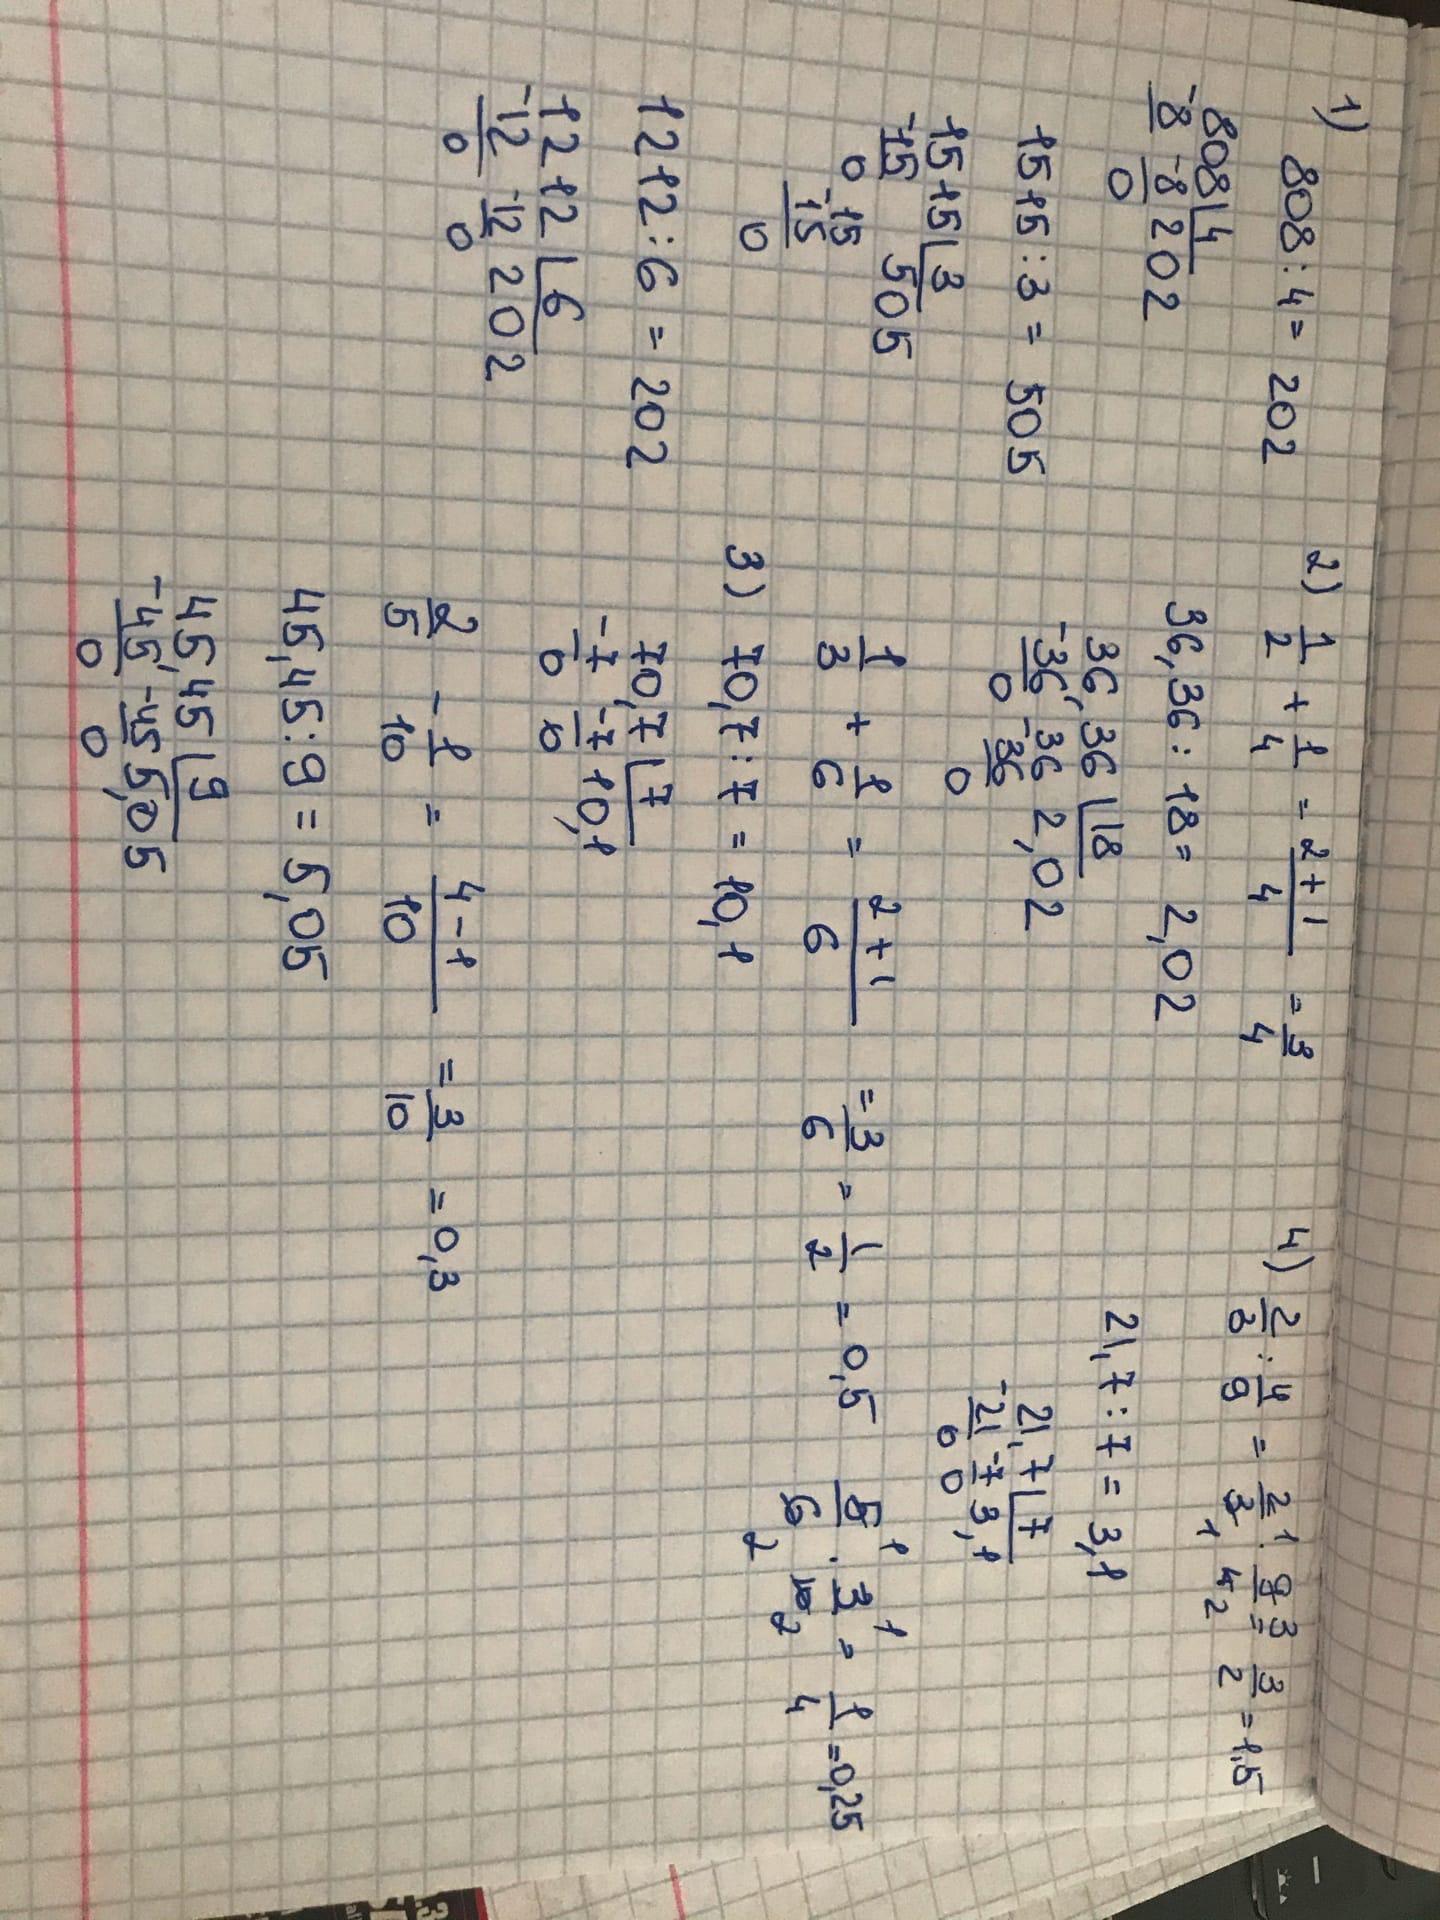 1) 808 : 4 = 202
808 | 4
-8 -8 202
0
1515 : 3 = 505
1515 | 3
-15 505
0 15
-15
0
1212 : 6 = 202
1212 | 6
-12 -12 202
0 0
2) 1/2 + 1/4 = (2+1)/4 = 3/4
36,36 : 18 = 2,02
36,36 | 18
-36, -36 2,02
0 0
1/3 + 1/6 = (2+1)/6 = 3/6 = 1/2 = 0,5
3) 70,7 : 7 = 10,1
70,7 | 7
-7 -7 10,1
0 0
2/5 - 1/10 = (4-1)/10 = 3/10 = 0,3
45,45 : 9 = 5,05
45,45 | 9
-45, -45 5,05
0 0
4) 2/3 : 4/9 = 2/3 · 9/4 = 3/2 = 1,5
21,7 : 7 = 3,1
21,7 | 7
-21 -7 3,1
0 0
5/6 · 3/10 = 1/4 = 0,25